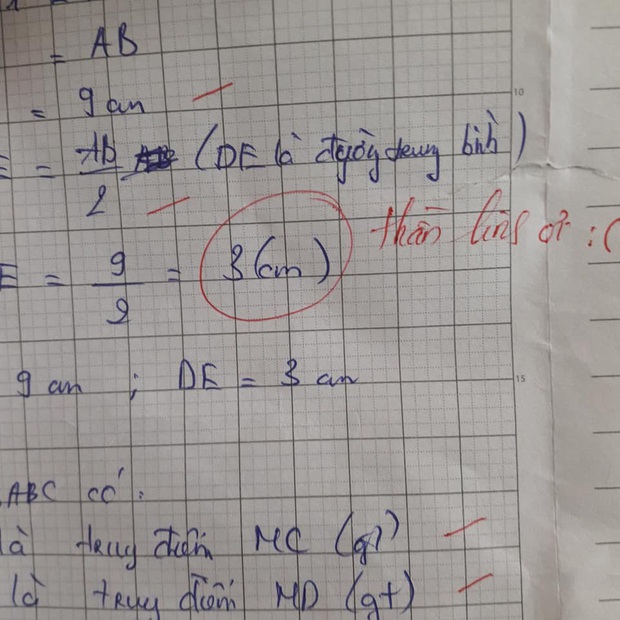 = AB
= 9 cm
E = AB/2 (DE là đường trung bình)
E = 9/2 = 3 (cm) thần linh ơi :(
9 cm ; DE = 3 cm
ABC có :
là trung điểm MC (gt)
là trung điểm MD (gt)
10
15